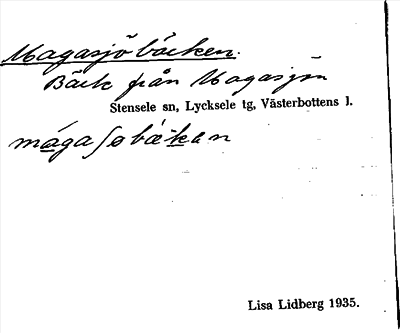 Magasjöbäcken.
Bäck från Magasjön
Stensele sn, Lycksele tg, Västerbottens l.
mágaʃøbäkan
Lisa Lidberg 1935.